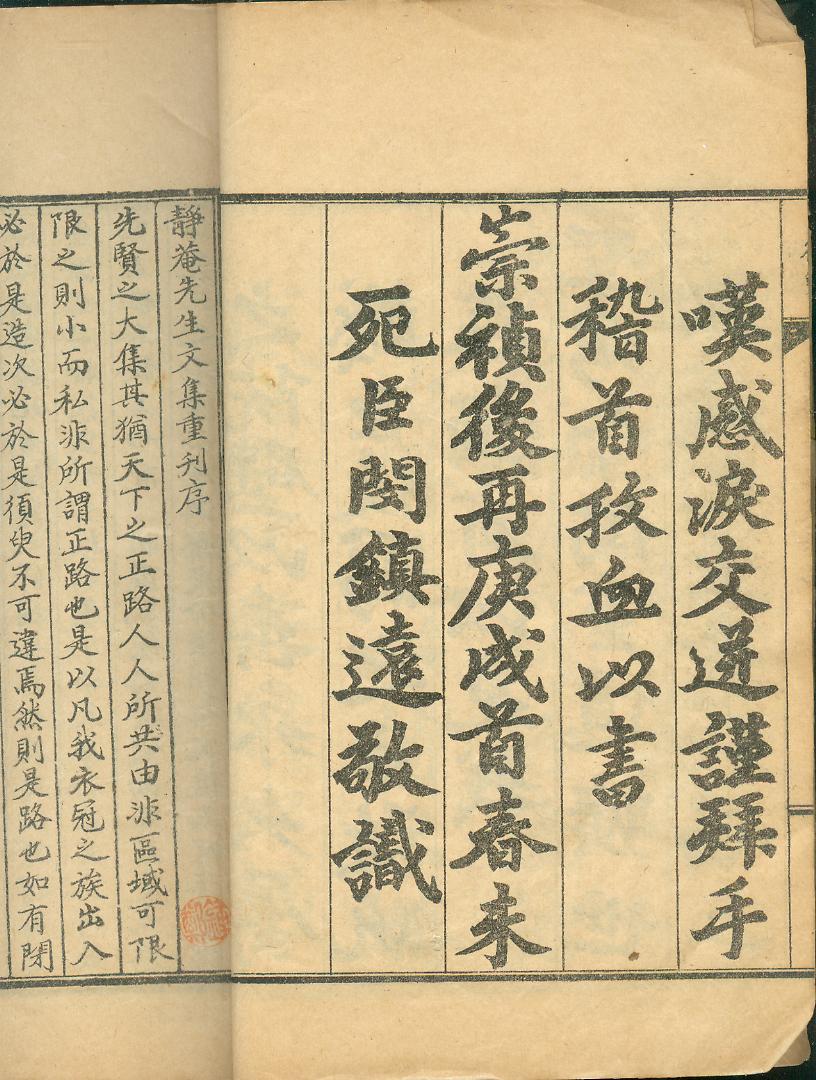 嘆感淚交迸謹拜手
稽首抆血以書
崇禎後再庚戌首春未
死臣閔鎮遠敬識
靜菴先生文集重刋序
先賢之大集其猶天下之正路人人所共由非區域可限
限之則小而私非所謂正路也是以凡我衣冠之族出入
必於是造次必於是須臾不可違焉然則是路也如有閉